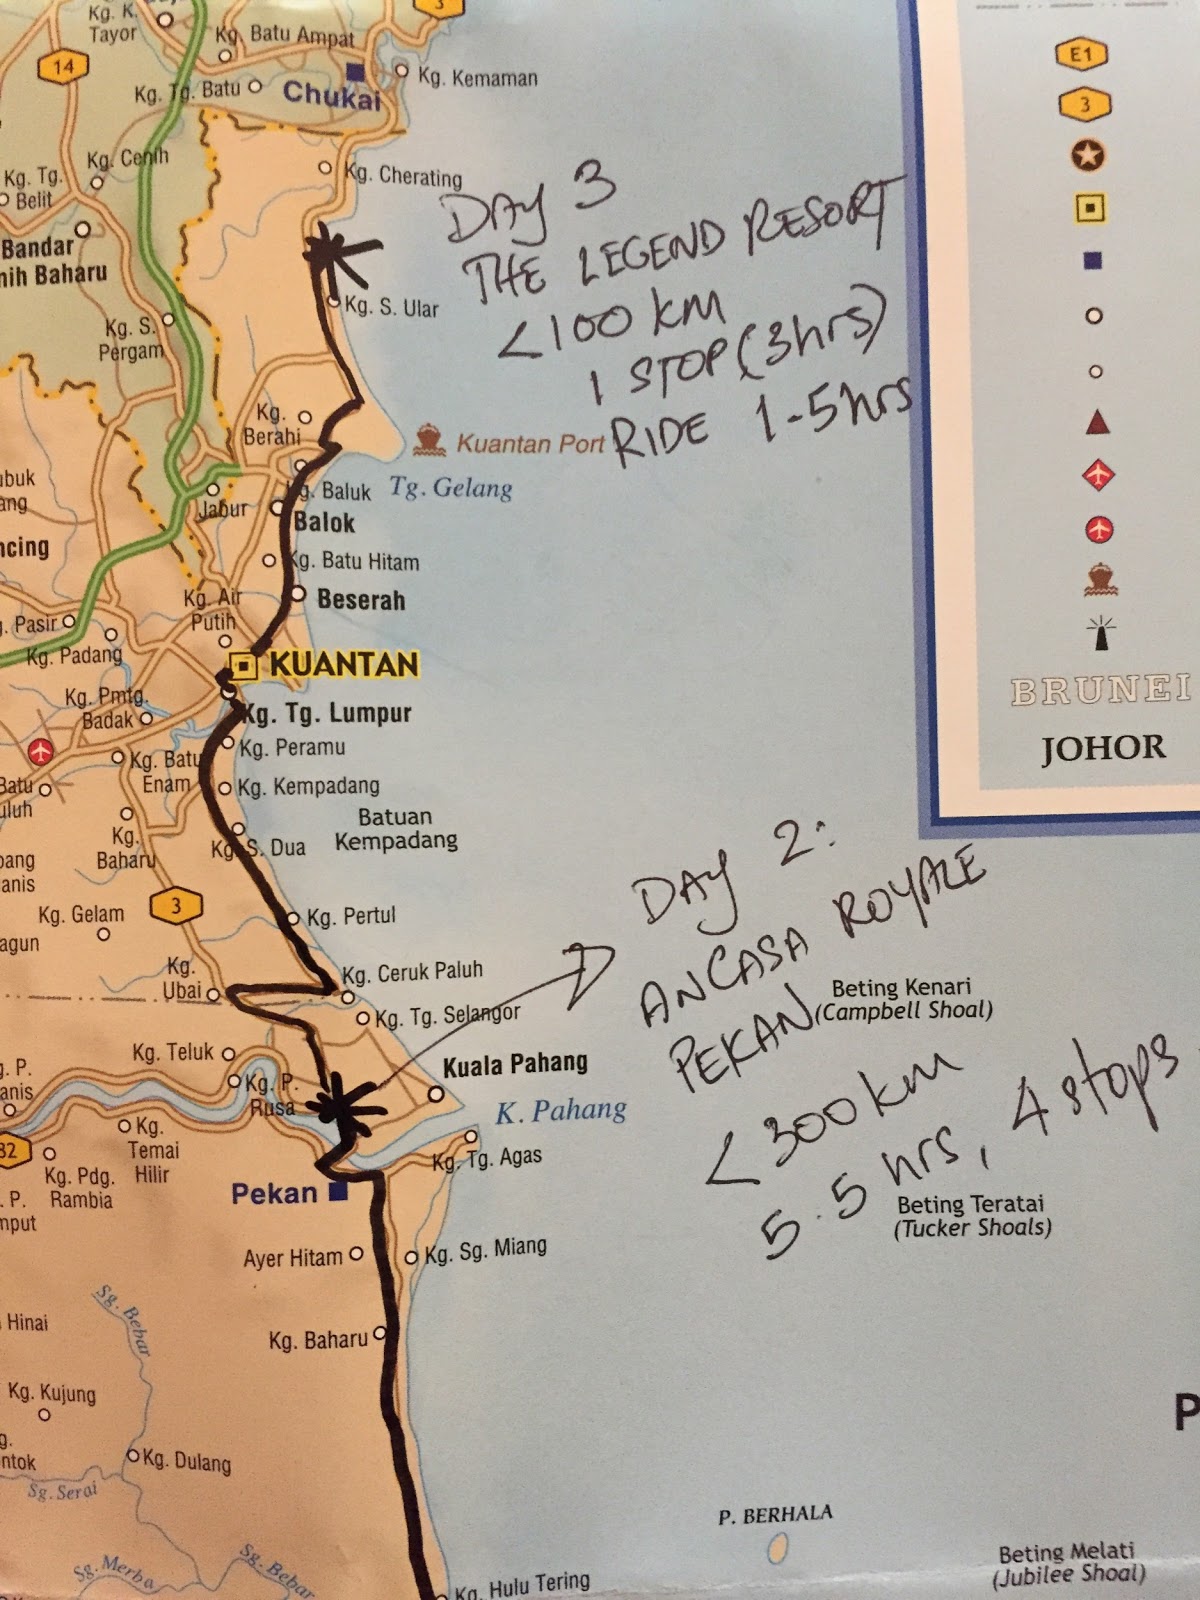 3
Kg. K.
Tayor
Kg. Batu Ampat
14
Kg. Kemaman
Kg. Tg. Batu
Chukai
E1
3
Kg. Cenih
Kg. Tg.
Belit
Kg. Cherating
DAY 3
THE LEGEND RESORT
<100 km
1 STOP (3hrs)
RIDE 1-5hrs
Bandar
nih Baharu
Kg. S. Ular
Kg. S.
Pergam
Kg.
Berahi
Kuantan Port
ubuk
ang
g. Baluk
Tg. Gelang
Jabur
Balok
ncing
Kg. Batu Hitam
Kg. Air
Putih
Beserah
g. Pasir
Kg. Padang
KUANTAN
Kg. Pmtg.
Badak
Kg. Tg. Lumpur
BRUNEI
JOHOR
Kg. Peramu
Kg. Batu
Enam
Batu
uluh
Kg. Kempadang
Batuan
Kempadang
Kg.
Baharu
Kg. S. Dua
DAY 2:
ANCASA ROYALE
PEKAN
<300 km
5.5 hrs, 4 stops
bang
anis
3
Kg. Gelam
Kg. Pertul
agun
Kg.
Ubai
Kg. Ceruk Paluh
Beting Kenari
(Campbell Shoal)
Kg. Tg. Selangor
Kg. Teluk
Kuala Pahang
g. P.
anis
Kg. P.
Rusa
K. Pahang
Kg.
Temai
Hilir
82
Kg. Tg. Agas
Kg. Pdg.
Rambia
Pekan
. P.
mput
Beting Teratai
(Tucker Shoals)
Ayer Hitam
Kg. Sg. Miang
Sg. Bebar
Hinai
Kg. Baharu
Kg. Kujung
P
g.
ntok
Kg. Dulang
Sg. Serai
P. BERHALA
Sg. Merba
Sg. Bebar
Kg. Hulu Tering
Beting Melati
(Jubilee Shoal)